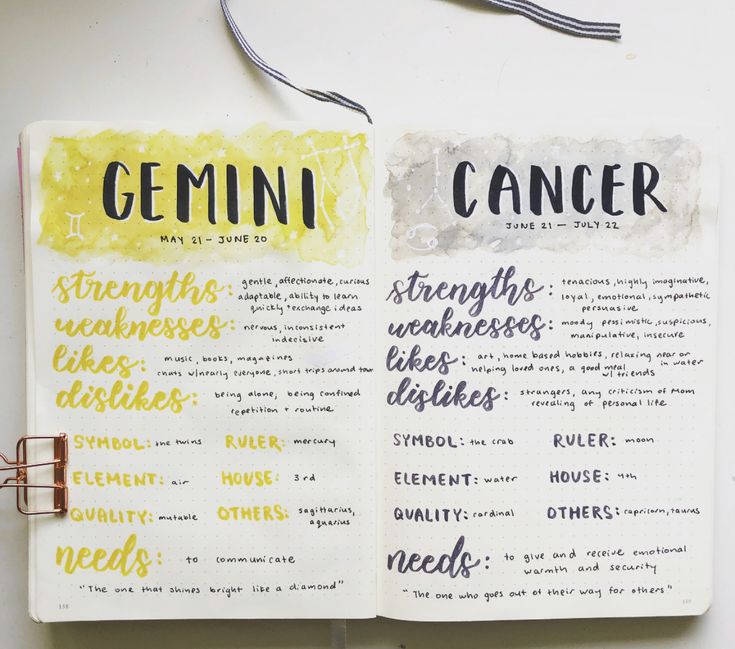 GEMINI
MAY 21 — JUNE 20
strengths: gentle, affectionate, curious
adaptable, ability to learn
quickly + exchange ideas
weaknesses: nervous, inconsistent
indecisive
likes: music, books, magazines
chats w/nearly everyone, short trips around town
dislikes: being alone, being confined
repetition + routine
SYMBOL: the twins RULER: mercury
ELEMENT: air HOUSE: 3rd
QUALITY: mutable OTHERS: sagittarius,
aquarius
needs: to communicate
"The one that shines bright like a diamond"
158
CANCER
JUNE 21 — JULY 22
strengths: tenacious, highly imaginative,
loyal, emotional, sympathetic
persuasive
weaknesses: moody pessimistic, suspicious,
manipulative, insecure
likes: art, home based hobbies, relaxing near or in water
helping loved ones, a good meal
w/ friends
dislikes: strangers, any criticism of Mom
revealing of personal life
SYMBOL: the crab RULER: moon
ELEMENT: water HOUSE: 4th
QUALITY: cardinal OTHERS: capricorn, taurus
needs: to give and receive emotional
warmth and security
"The one who goes out of their way for others"
159